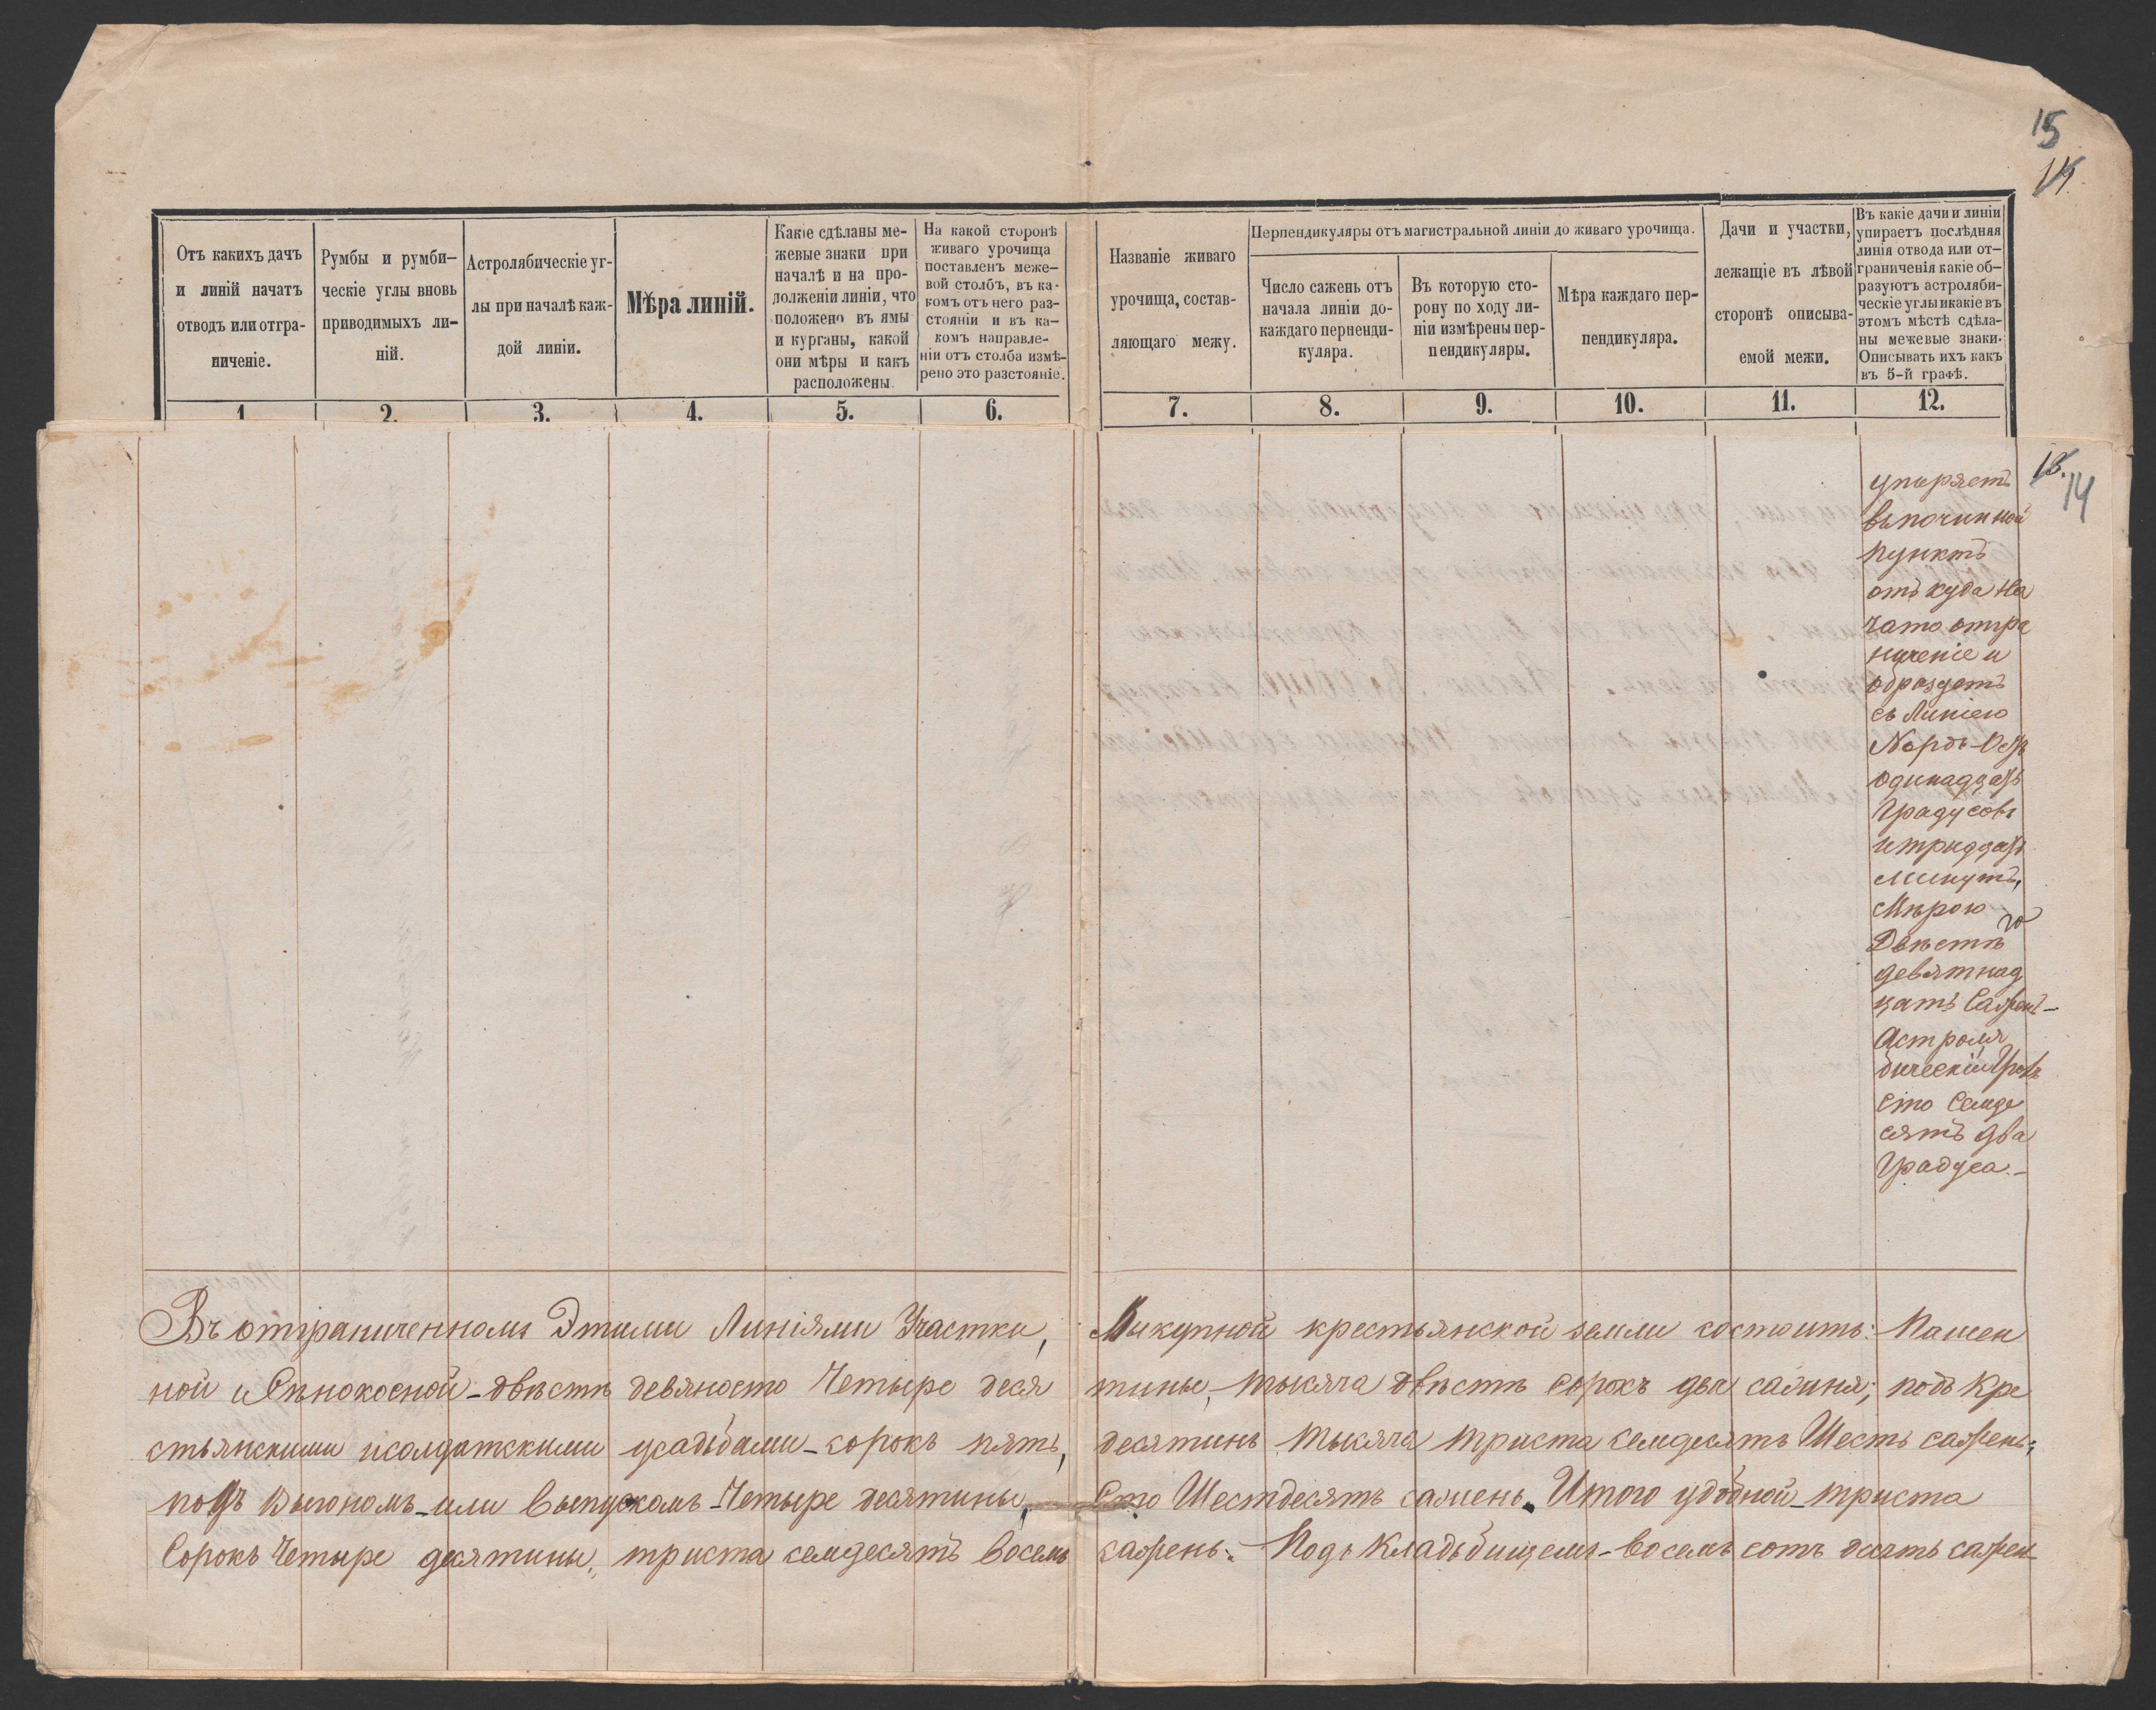 15
14.
Отъ какихъ дачъ
и линій начатъ
отводъ или отгра-
ниченіе.
Румбы и румби-
ческіе углы вновь
приводимыхъ ли-
ній.
Астролябическіе уг-
лы при началѣ каж-
дой линіи.
Мѣра линій.
Какіе сдѣланы ме-
жевые знаки при
началѣ и на про-
долженіи линіи, что
положено въ ямы
и курганы, какой
они мѣры и какъ
расположены.
На какой сторонѣ
живаго урочища
поставленъ меже-
вой столбъ, въ ка-
комъ отъ него раз-
стояніи и въ ка-
комъ направле-
ніи отъ столба измѣ-
рено это разстояніе.
Названіе живаго
урочища, состав-
ляющаго межу.
Перпендикуляры отъ магистральной линіи до живаго урочища.
Число сажень отъ
начала линіи до-
каждаго перпенди-
куляра.
Въ которую сто-
рону по ходу ли-
ніи измѣрены пер-
пендикуляры.
Мѣра каждаго пер-
пендикуляра.
Дачи и участки,
лежащіе въ лѣвой
сторонѣ описыва-
емой межи.
Въ какіе дачи и линіи
упираетъ послѣдняя
линія отвода или от-
граниченія какіе об-
разуютъ астроляби-
ческіе углы и какіе въ
этомъ мѣстѣ сдѣла-
ны межевые знаки.
Описывать ихъ какъ
въ 5-й графѣ.
1. 2. 3. 4. 5. 6. 7. 8. 9. 10. 11. 12.
13.
14
упиряетъ
въпочин ной
пунктъ
отъ куда на
чато отгра
ниченіе и
образуетъ
съ Линіею
Нордъ-Остъ
одинадцать
Градусовъ
итриддать
минутъ,
Мѣрою
Двѣстѣ
девятнад
цать Сажень-
Астроля
бический
сто Семде
сятъ два
Градуса.-
Въ отграниченномъ Этими Линіями Участки, Выкупной крестьянской земли состоитъ: Пашен
ной и Сѣнокосной - двѣстѣ девяносто Четыре деся тины, тысяча двѣстѣ сорокъ два саженя; подъ Кре
стьянскими исолдатскими усадьбами - сорокъ пять, десятинъ тысяча триста семдесятъ Шесть сажень;
подъ Выгономъ - или Выпускомъ - Четыре десятины, Сто Шестдесятъ сажень. Итого удобной - триста
Сорокъ Четыре десятины, триста семдесятъ Восемь сажень. Подъ Кладьбищемъ - восемь сотъ сажен